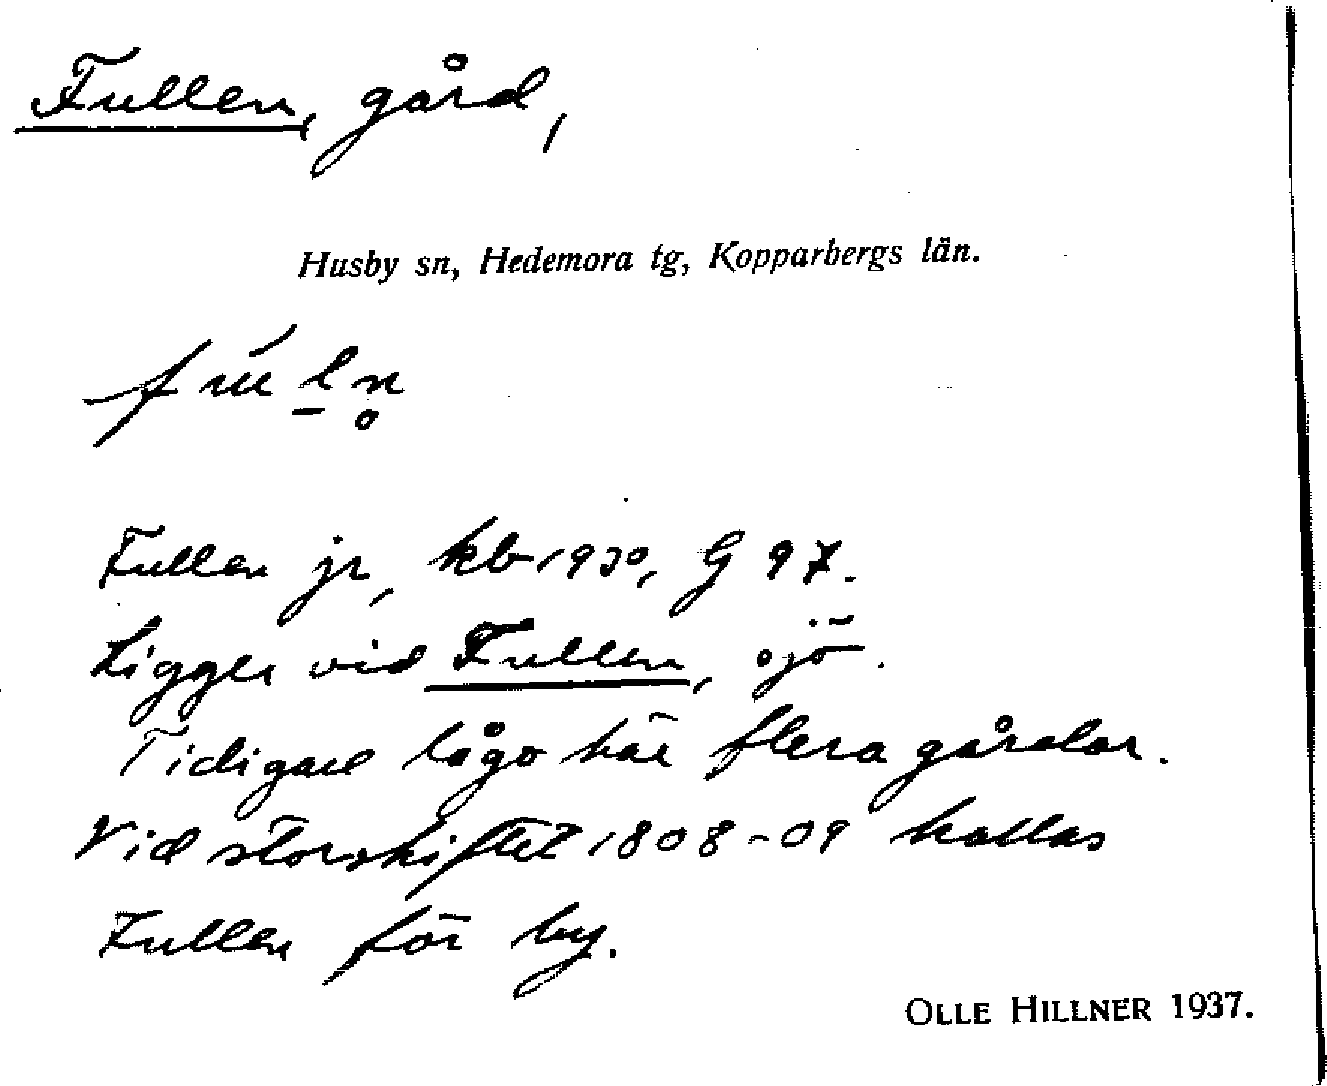 Fullen, gård,
Husby sn, Hedemora tg, Kopparbergs län.
fúl̲n̥
Fullen jr, kb 1930, G 97.
Ligger vid Fullen, sjö.
Tidigare lågo här flera gårdar.
Vid storskiftet 1808-09 kallas
Fullen för by.
OLLE HILLNER 1937.